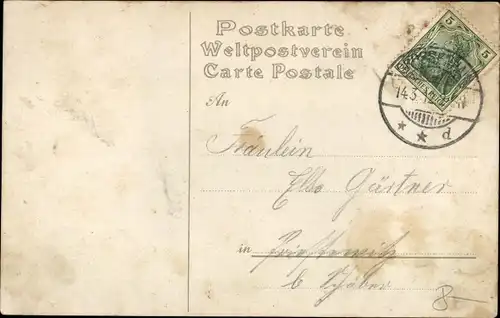 Postkarte
Weltpostverein
Carte Postale
5
5
14.3.
* * d
An
Fräulein
Else Gärtner
in
b
8-